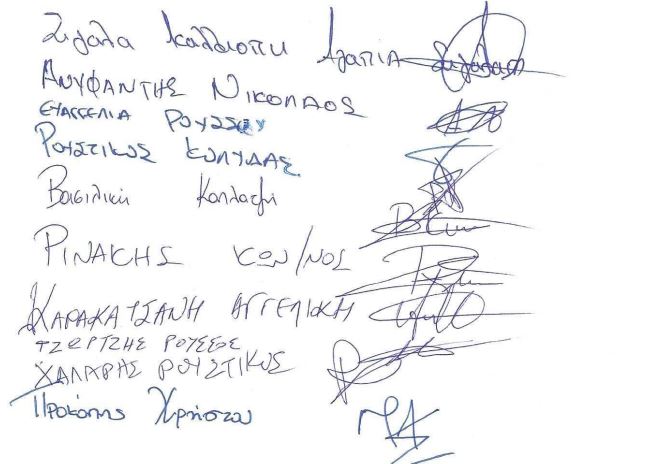 Ζιγάλα Καλλιόπη Αγαπία
ΑΝΥΦΑΝΤΗΣ ΝΙΚΟΛΑΟΣ
ΕΥΑΓΓΕΛΙΑ ΡΟΥΣΣΟΥ
ΡΟΥΣΤΙΚΟΣ ΚΟΛΥΔΑΣ
Βασιλική
ΡΙΝΑΚΗΣ ΚΩΝ/ΝΟΣ
ΚΑΡΑΚΑΤΣΑΝΗ ΑΓΓΕΛΙΚΗ
ΤΖΩΡΤΖΗΣ ΡΟΥΣΣΟΣ
ΧΑΛΑΡΗΣ ΡΟΥΣΤΙΚΟΣ
Προκόπης Χρήστου